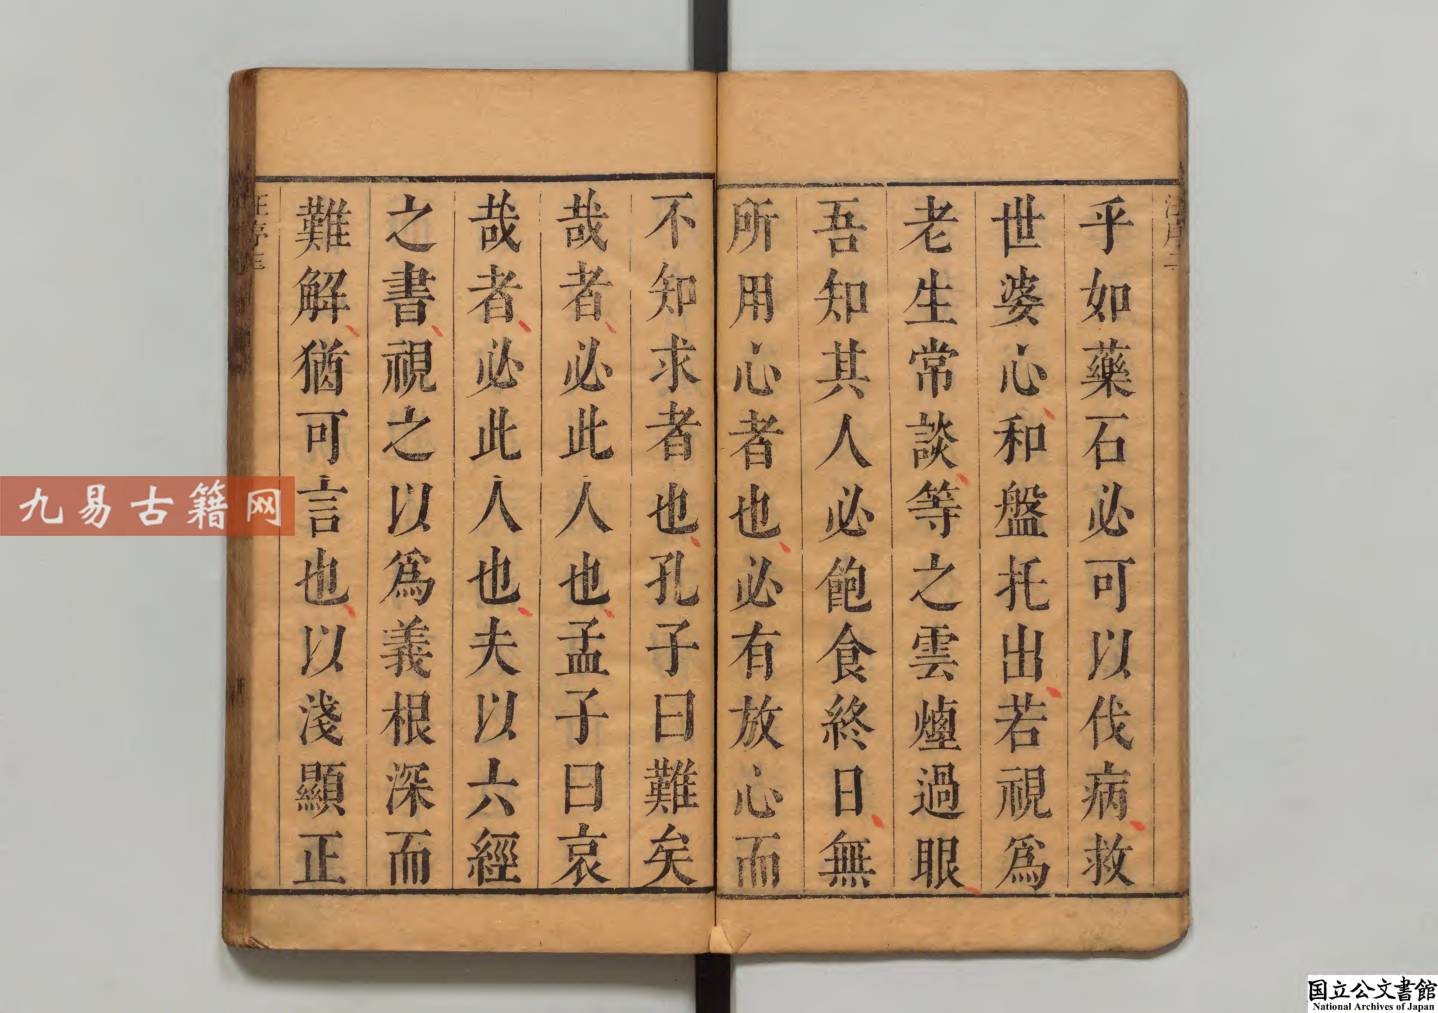 乎如藥石必可以伐病救
世婆心和盤托出若視爲
老生常談等之雲煙過眼
吾知其人必飽食終日無
所用心者也必有放心而
不知求者也孔子曰難矣
哉者必此人也孟子曰哀
哉者必此人也夫以六經
之書視之以爲義根深而
難解猶可言也以淺顯正
九易古籍网
国立公文書館
National Archives of Japan